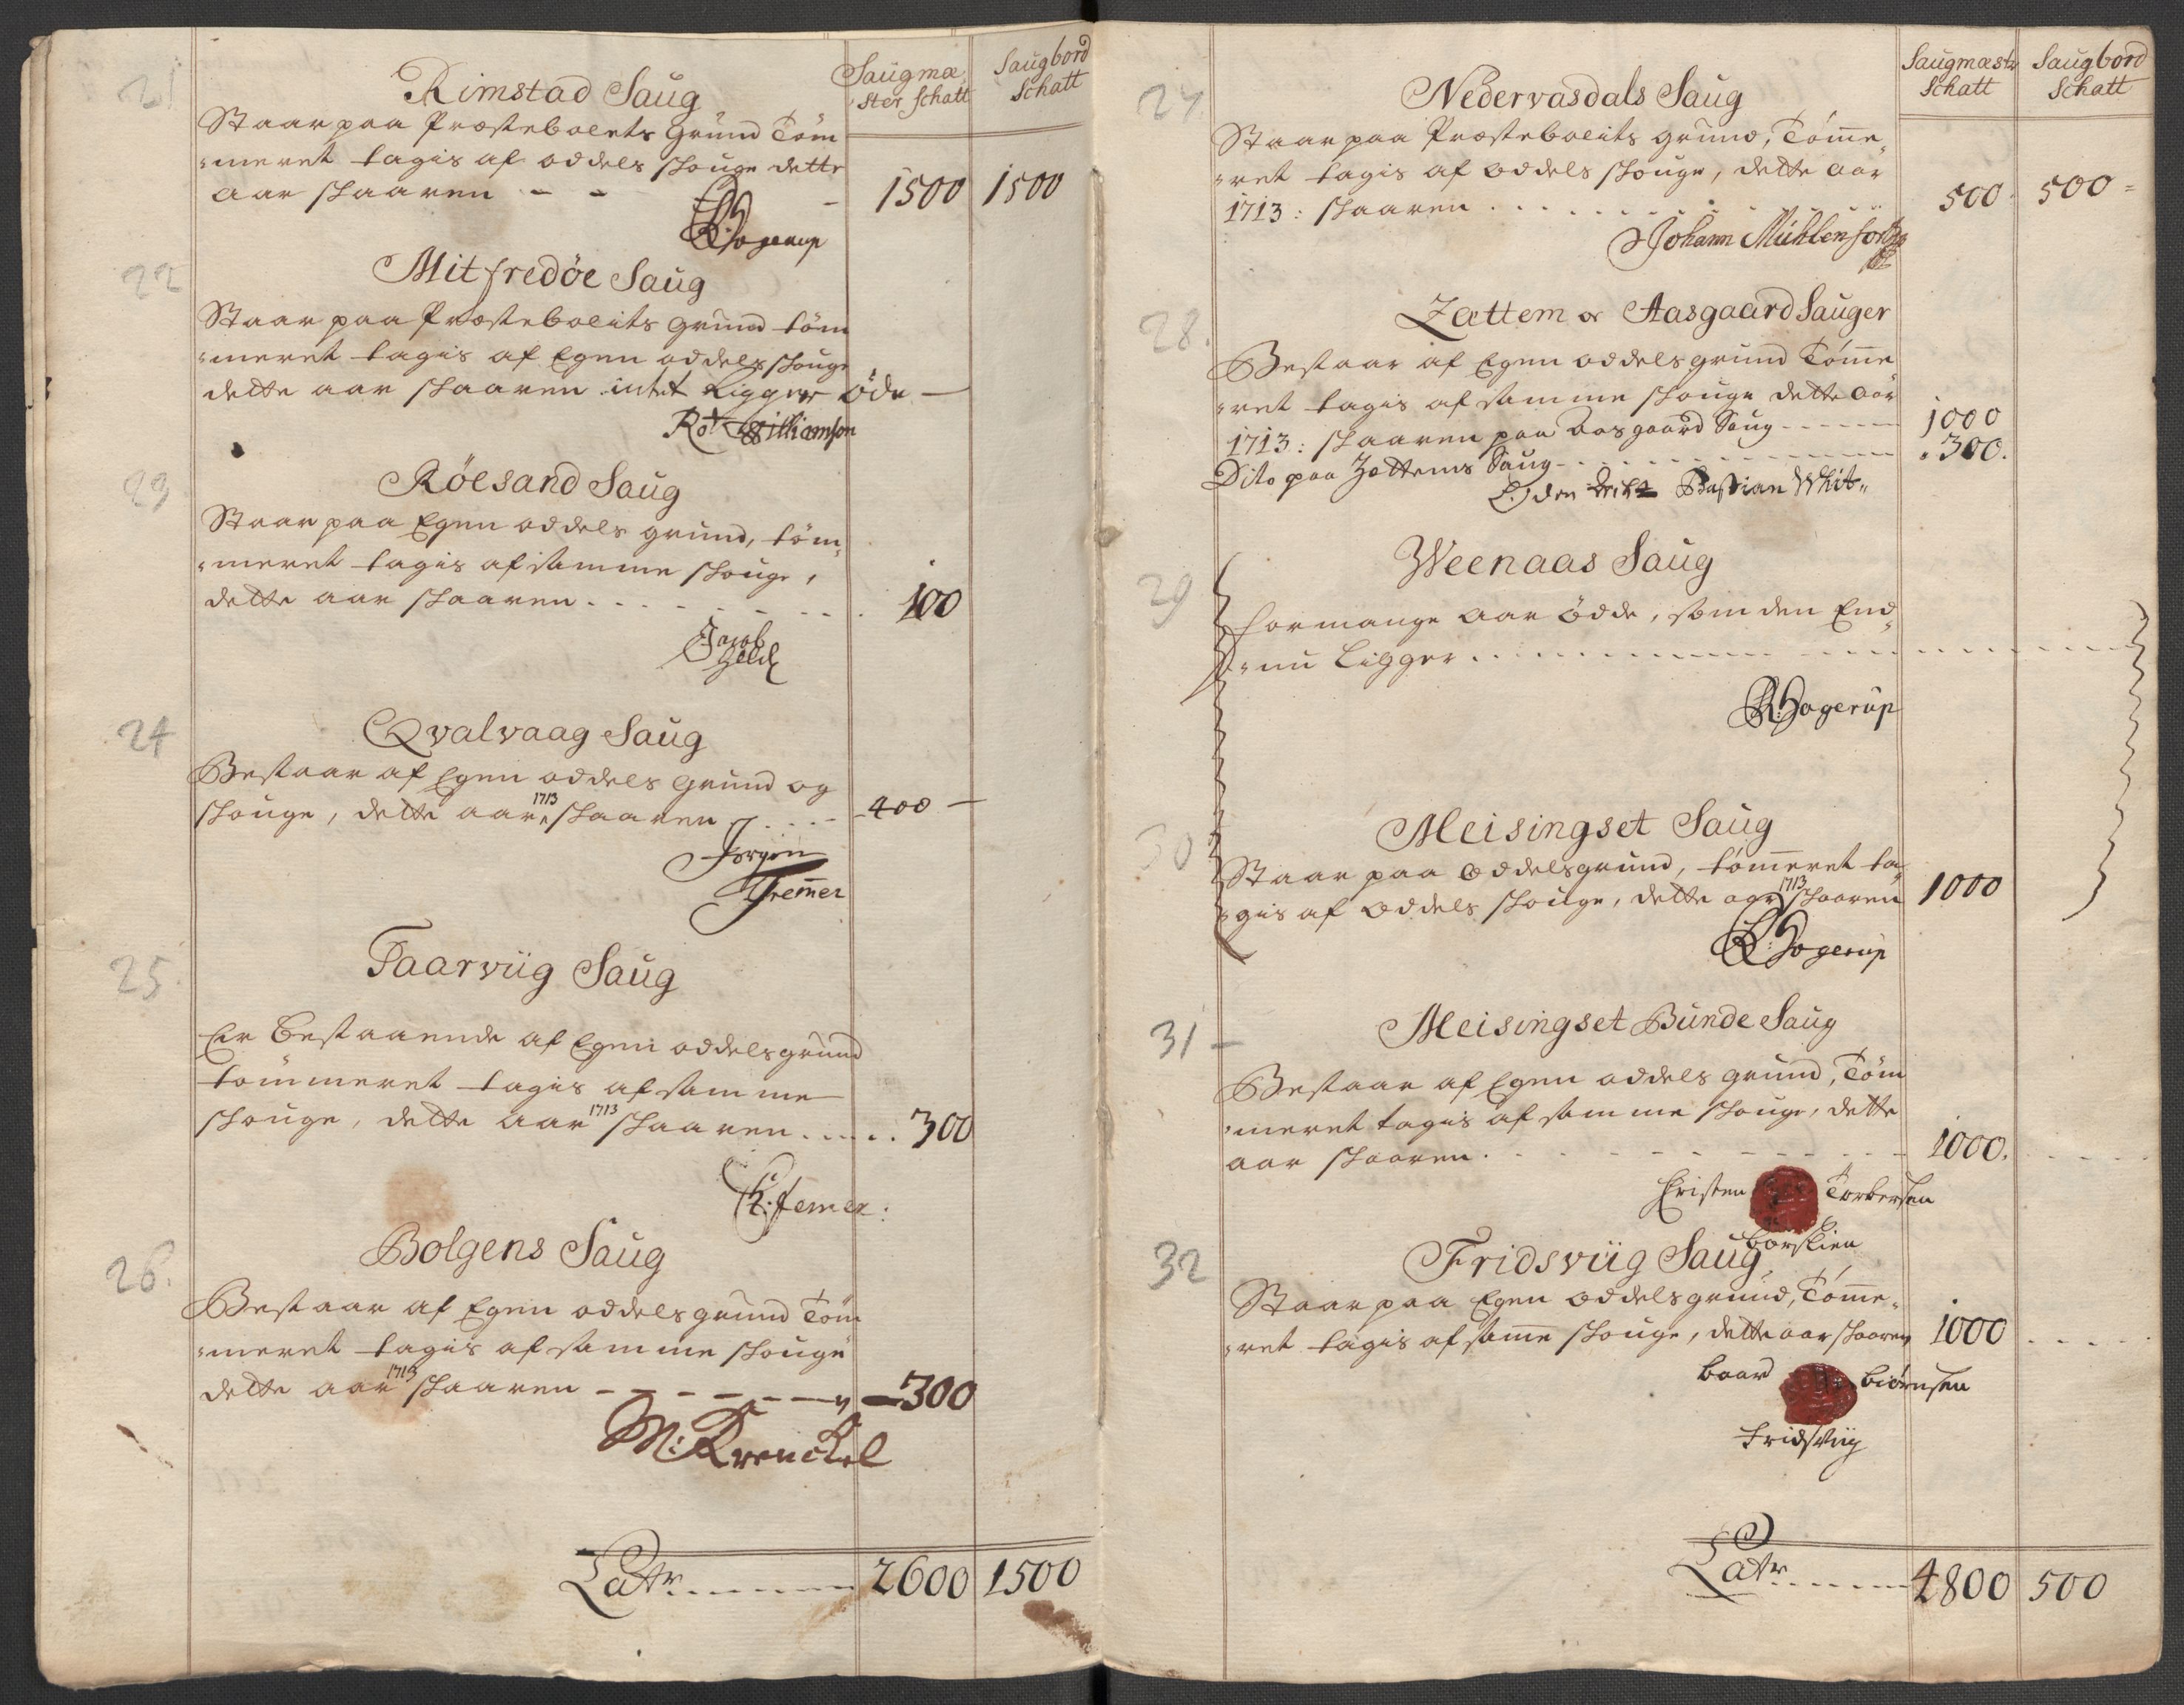 Saugmæ-
ster Schatt
Saugbord
Schatt
21
Rimstad Saug
Staar paa Præstebolets Grund Töm
meret tagis af oddels skouge dette
aar skaaren - - -
1500 1500
Hogerup
22
Mitfredöe Saug
Staar paa Præstebolets grund töm
meret tagis af Egen oddels skouge
dette aar skaaren intet Ligger öde
Rot Williamson
23
Röesand Saug
Staar paa Egen oddels grund, töm
meret tagis af samme skouge,
dette aar skaaren
100
Jacob
24
Qvalvaag Saug
Bestaar af Egen oddels Grund og
skouge, dette aar 1713 skaaren
400
Jörgen
Tremer
25
Faarviig Saug
Er bestaaende af Egen oddelsgrund
tömmeret tagis af samme
skouge, dette aar 1713 skaaren
300
26.
Bolgens Saug
Bestaar af Egen oddelsgrund Töm
meret tagis af samme skouge
dette aar 1713 skaaren
300
M: Krenckel
Latr 2600 1500
Saugmæstr
Schatt
Saugbord
Schatt
27
Nedervasdals Saug
Staar paa Præstebolits grund, Tömme
ret tagis af oddels skouge, dette aar
1713: skaaren
500 500
Johann Mühlenfort
28.
Zættem og Aasgaard Sauger
Bestaar af Egen oddels grund Tömme
ret tagis af samme skouge dette aar
1713: skaaren paa Aasgaard Saug
1000
Dito paa Zættems Saug
300.
Bastian White
29
Weenaas Saug
for mange aar Ödde, som den End
nu Ligger
R: Hogerup
30
Meisingset Saug
Staar paa oddelsgrund, tömmeret ta
gis af oddels skouge, dette aar 1713 skaaren
1000
R: Hogerup
31
Meisingset Bunde Saug
Bestaar af Egen oddels grund, Töm
meret tagis af samme skouge, dette
aar skaaren.
1000.
Cristen Torbersen
32
Fridsviig Saug
Staar paa Egen oddelsgrund, Tömme
ret tagis af samme skouge, dette aar skaaren
1000
baard biörnsen
Fridsviig
Latr 4800 500